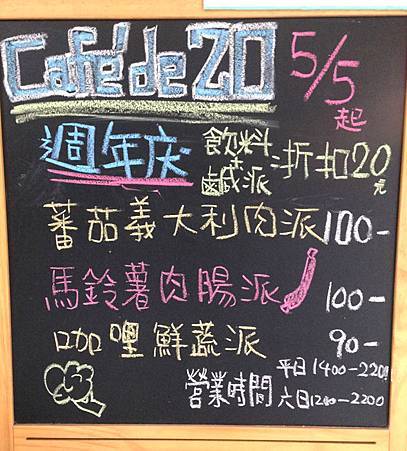 Café de 20
5/5
起
週年庆
飲料
+
鹹派
折扣20
元
蕃茄義大利肉派 100-
馬鈴薯肉腸派 100-
咖哩鮮蔬派 90-
營業時間
平日 1400-2200
六日 1200-2200